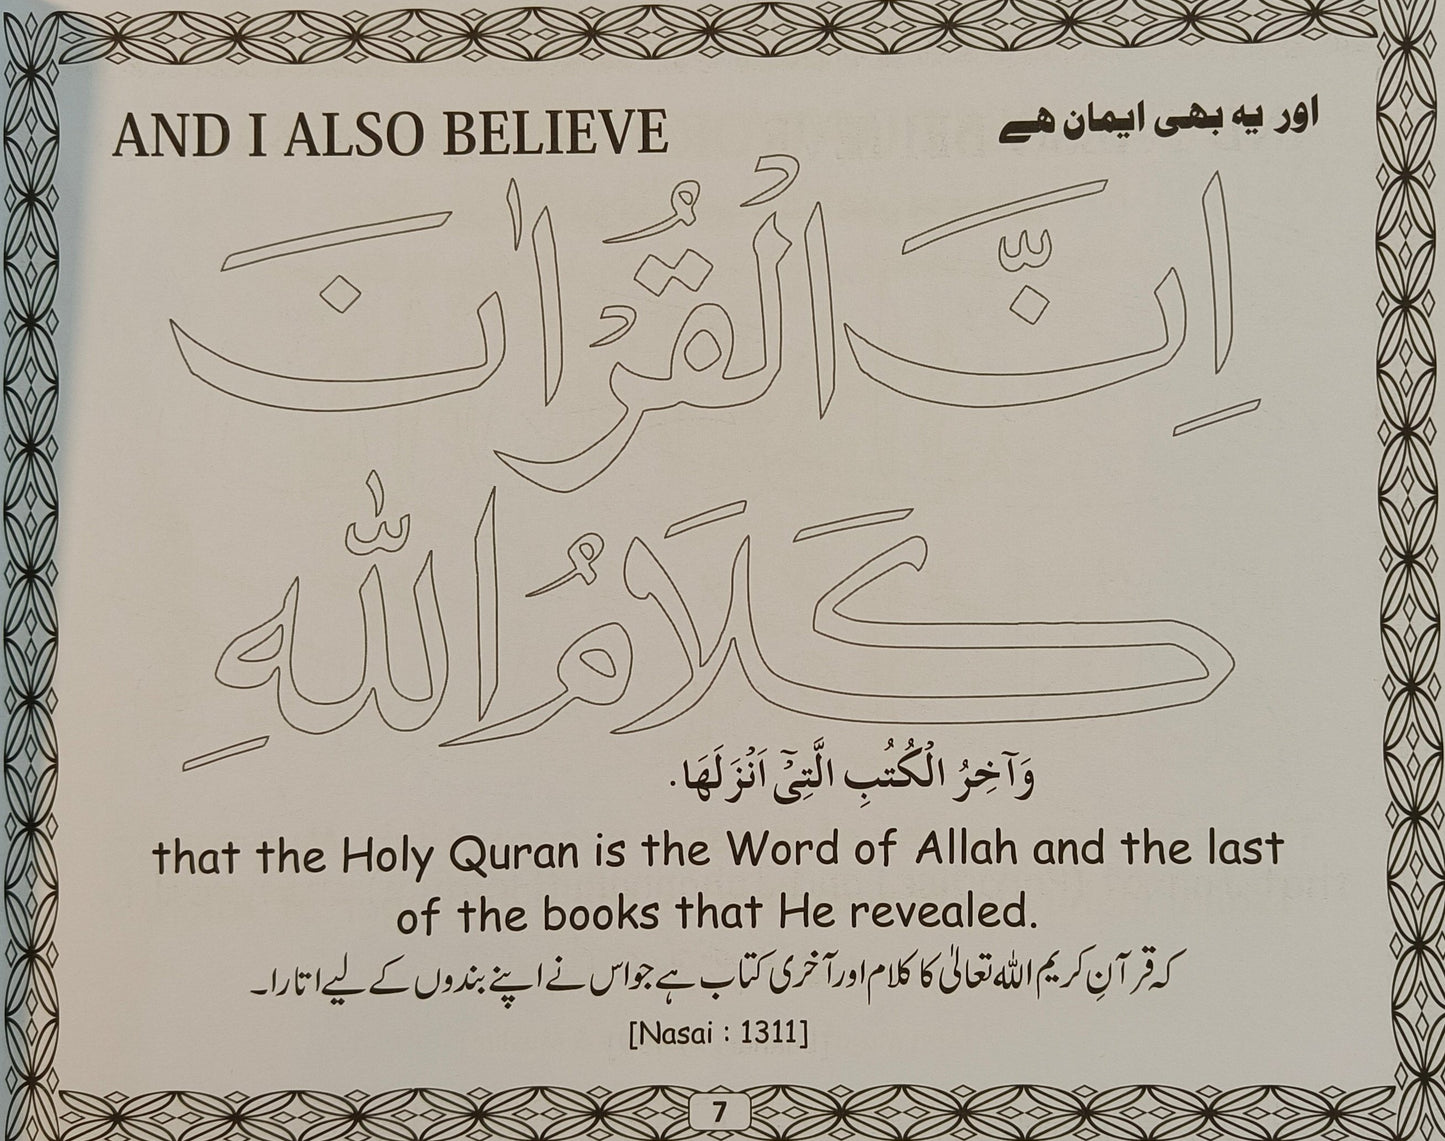 AND I ALSO BELIEVE
اور یہ بھی ایمان ہے
اِنَّ الْقُرْاٰنَ
كَلَامُ اللّٰهِ
وَآخِرُ الْكُتُبِ الَّتِيْٓ اَنْزَلَهَا.
that the Holy Quran is the Word of Allah and the last
of the books that He revealed.
کہ قرآنِ کریم اللہ تعالیٰ کا کلام اور آخری کتاب ہے جو اس نے اپنے بندوں کے لیے اتارا۔
[Nasai : 1311]
7